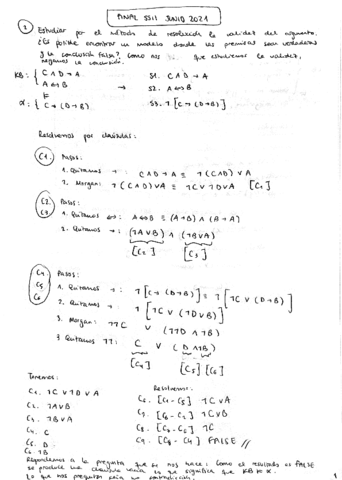 FINAL SSII JUNIO 2021
① Estudiar por el método de resolución la validez del argumento.
¿Es posible encontrar un modelo donde las premisas sean verdaderas
y la conclusión falsa? Como nos que estudiemos la validez,
negamos la conclusión.
KB: { C ∧ D → A
A ↔ B
⊨
α: { C → (D → B)
S1. C ∧ D → A
S2. A ↔ B
S3. ¬[C → (D → B)]
Resolvemos por cláusulas:
C1. Pasos:
1. Quitamos → : C ∧ D → A ≡ ¬(C ∧ D) ∨ A
2. Morgan: ¬(C ∧ D) ∨ A ≡ ¬C ∨ ¬D ∨ A [C1]
C2. C3. Pasos:
1. Quitamos ↔: A ↔ B ≡ (A → B) ∧ (B → A)
2. Quitamos → : (¬A ∨ B) ∧ (¬B ∨ A)
[C2] [C3]
C4 C5 C6 Pasos:
1. Quitamos → : ¬[C → (D → B)] ≡ ¬[¬C ∨ (D → B)]
2. Quitamos → : ¬[¬C ∨ (¬D ∨ B)]
3. Morgan: ¬¬C ∨ (¬¬D ∧ ¬B)
3 Quitamos ¬¬: C ∨ (D ∧ ¬B)
[C4] [C5] [C6]
Tenemos:
C1. ¬C ∨ ¬D ∨ A
C2. ¬A ∨ B
C3. ¬B ∨ A
C4. C
C5. D
C6. ¬B
Resolvemos:
C6. [C1 - C5] ¬C ∨ A
C7. [C6 - C2] ¬C ∨ B
C8. [C7 - C6] ¬C
C9. [C8 - C4] FALSE //
Respondemos a la pregunta que se nos hace: Como el resultado es FALSE
se produce una cláusula vacía es que significa que KB ⊨ α.
Lo que nos pregunta sería una contradicción.
1